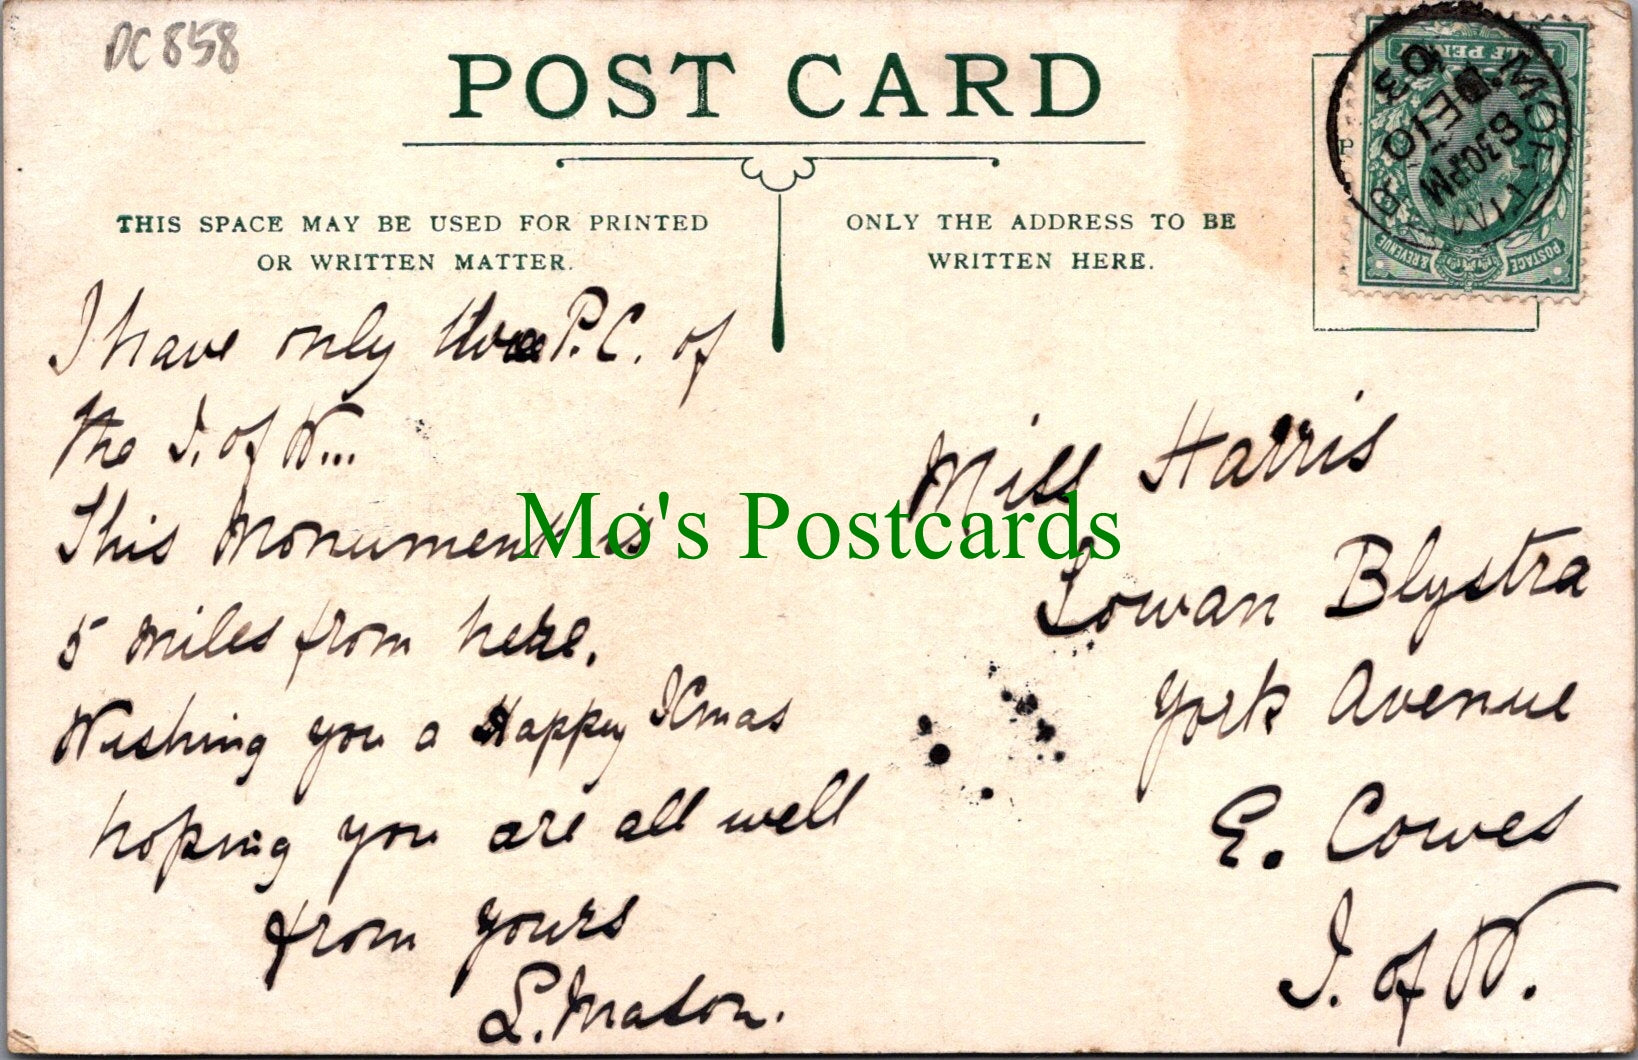 DC 858
POST CARD
THIS SPACE MAY BE USED FOR PRINTED
OR WRITTEN MATTER.
ONLY THE ADDRESS TO BE
WRITTEN HERE.
8 30PM
DE 10
03
POSTAGE & REVENUE
I have only P.C. of
the I. of W...
This Monument is
5 miles from here.
Wishing you a Happy Xmas
hoping you are all well
from yours
L. Maton.
Miss Harris
Lowan Blystra
York Avenue
E. Cowes
I. of W.
Mo's Postcards